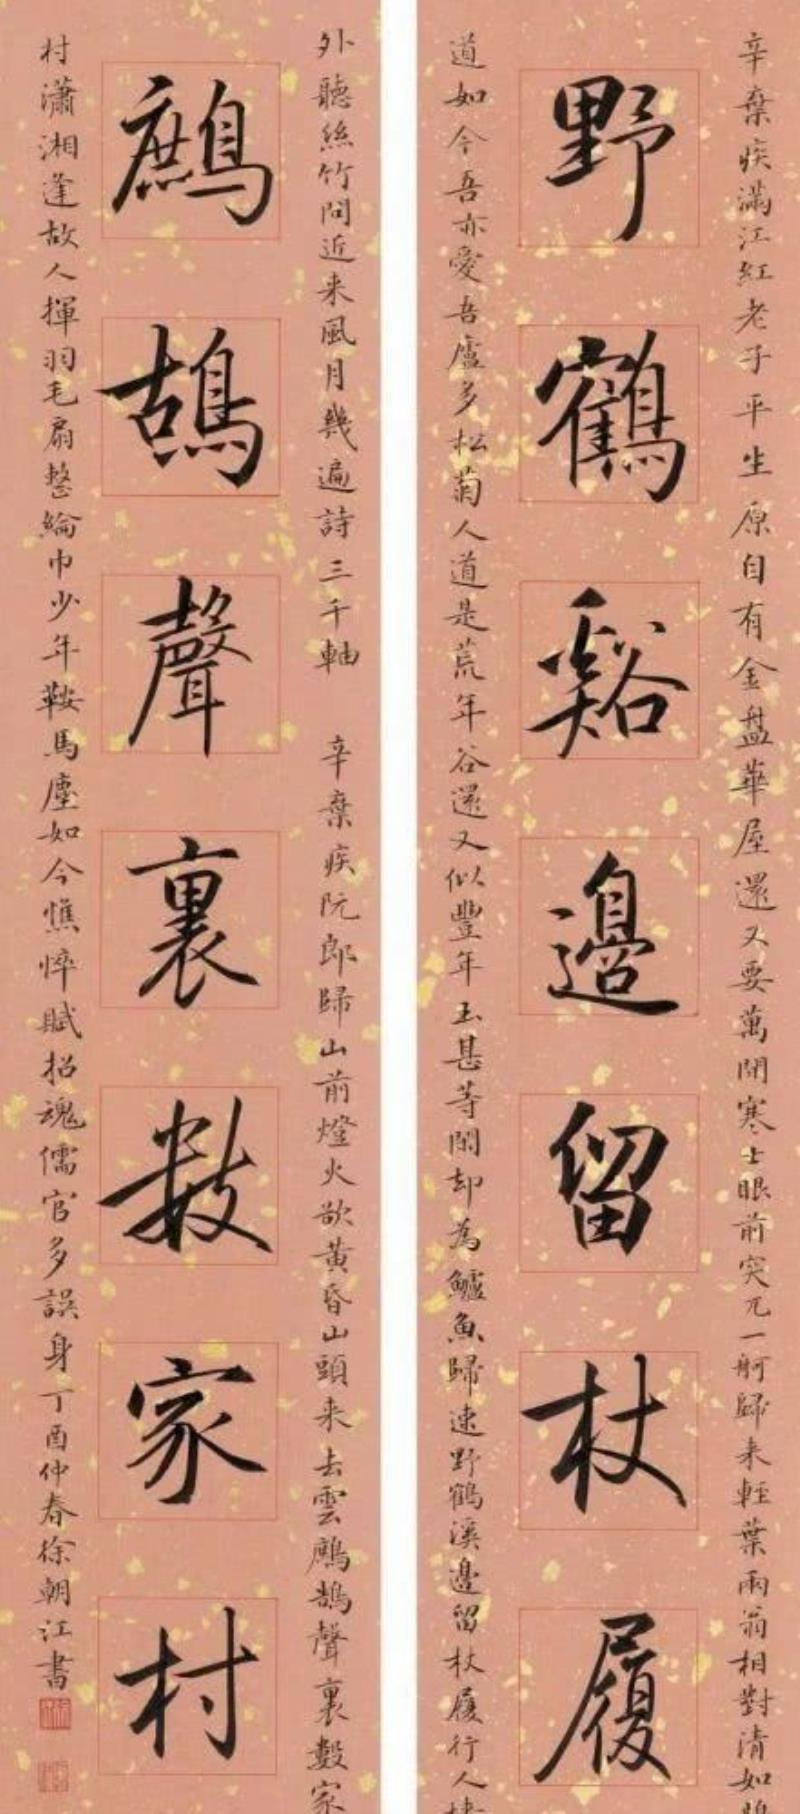 辛棄疾滿江紅老子平生原自有金盤華屋還又要萬間寒士眼前突兀一舸歸来輕葉兩翁相對清如鵠
野鶴谿邊留杖履
道如今吾亦愛吾廬多松菊人道是荒年谷還又似豐年玉甚等閑却為鱸魚歸速野鶴溪邊留杖履行人墻
外聽絲竹問近来風月幾遍詩三千軸 辛棄疾阮郎歸山前燈火欲黄昏山頭来去雲鷓鴣聲裏數家
鷓鴣聲裏數家村
村瀟湘逢故人揮羽毛扇整綸巾少年鞍馬塵如今憔悴賦招魂儒官多誤身丁酉仲春徐朝江書